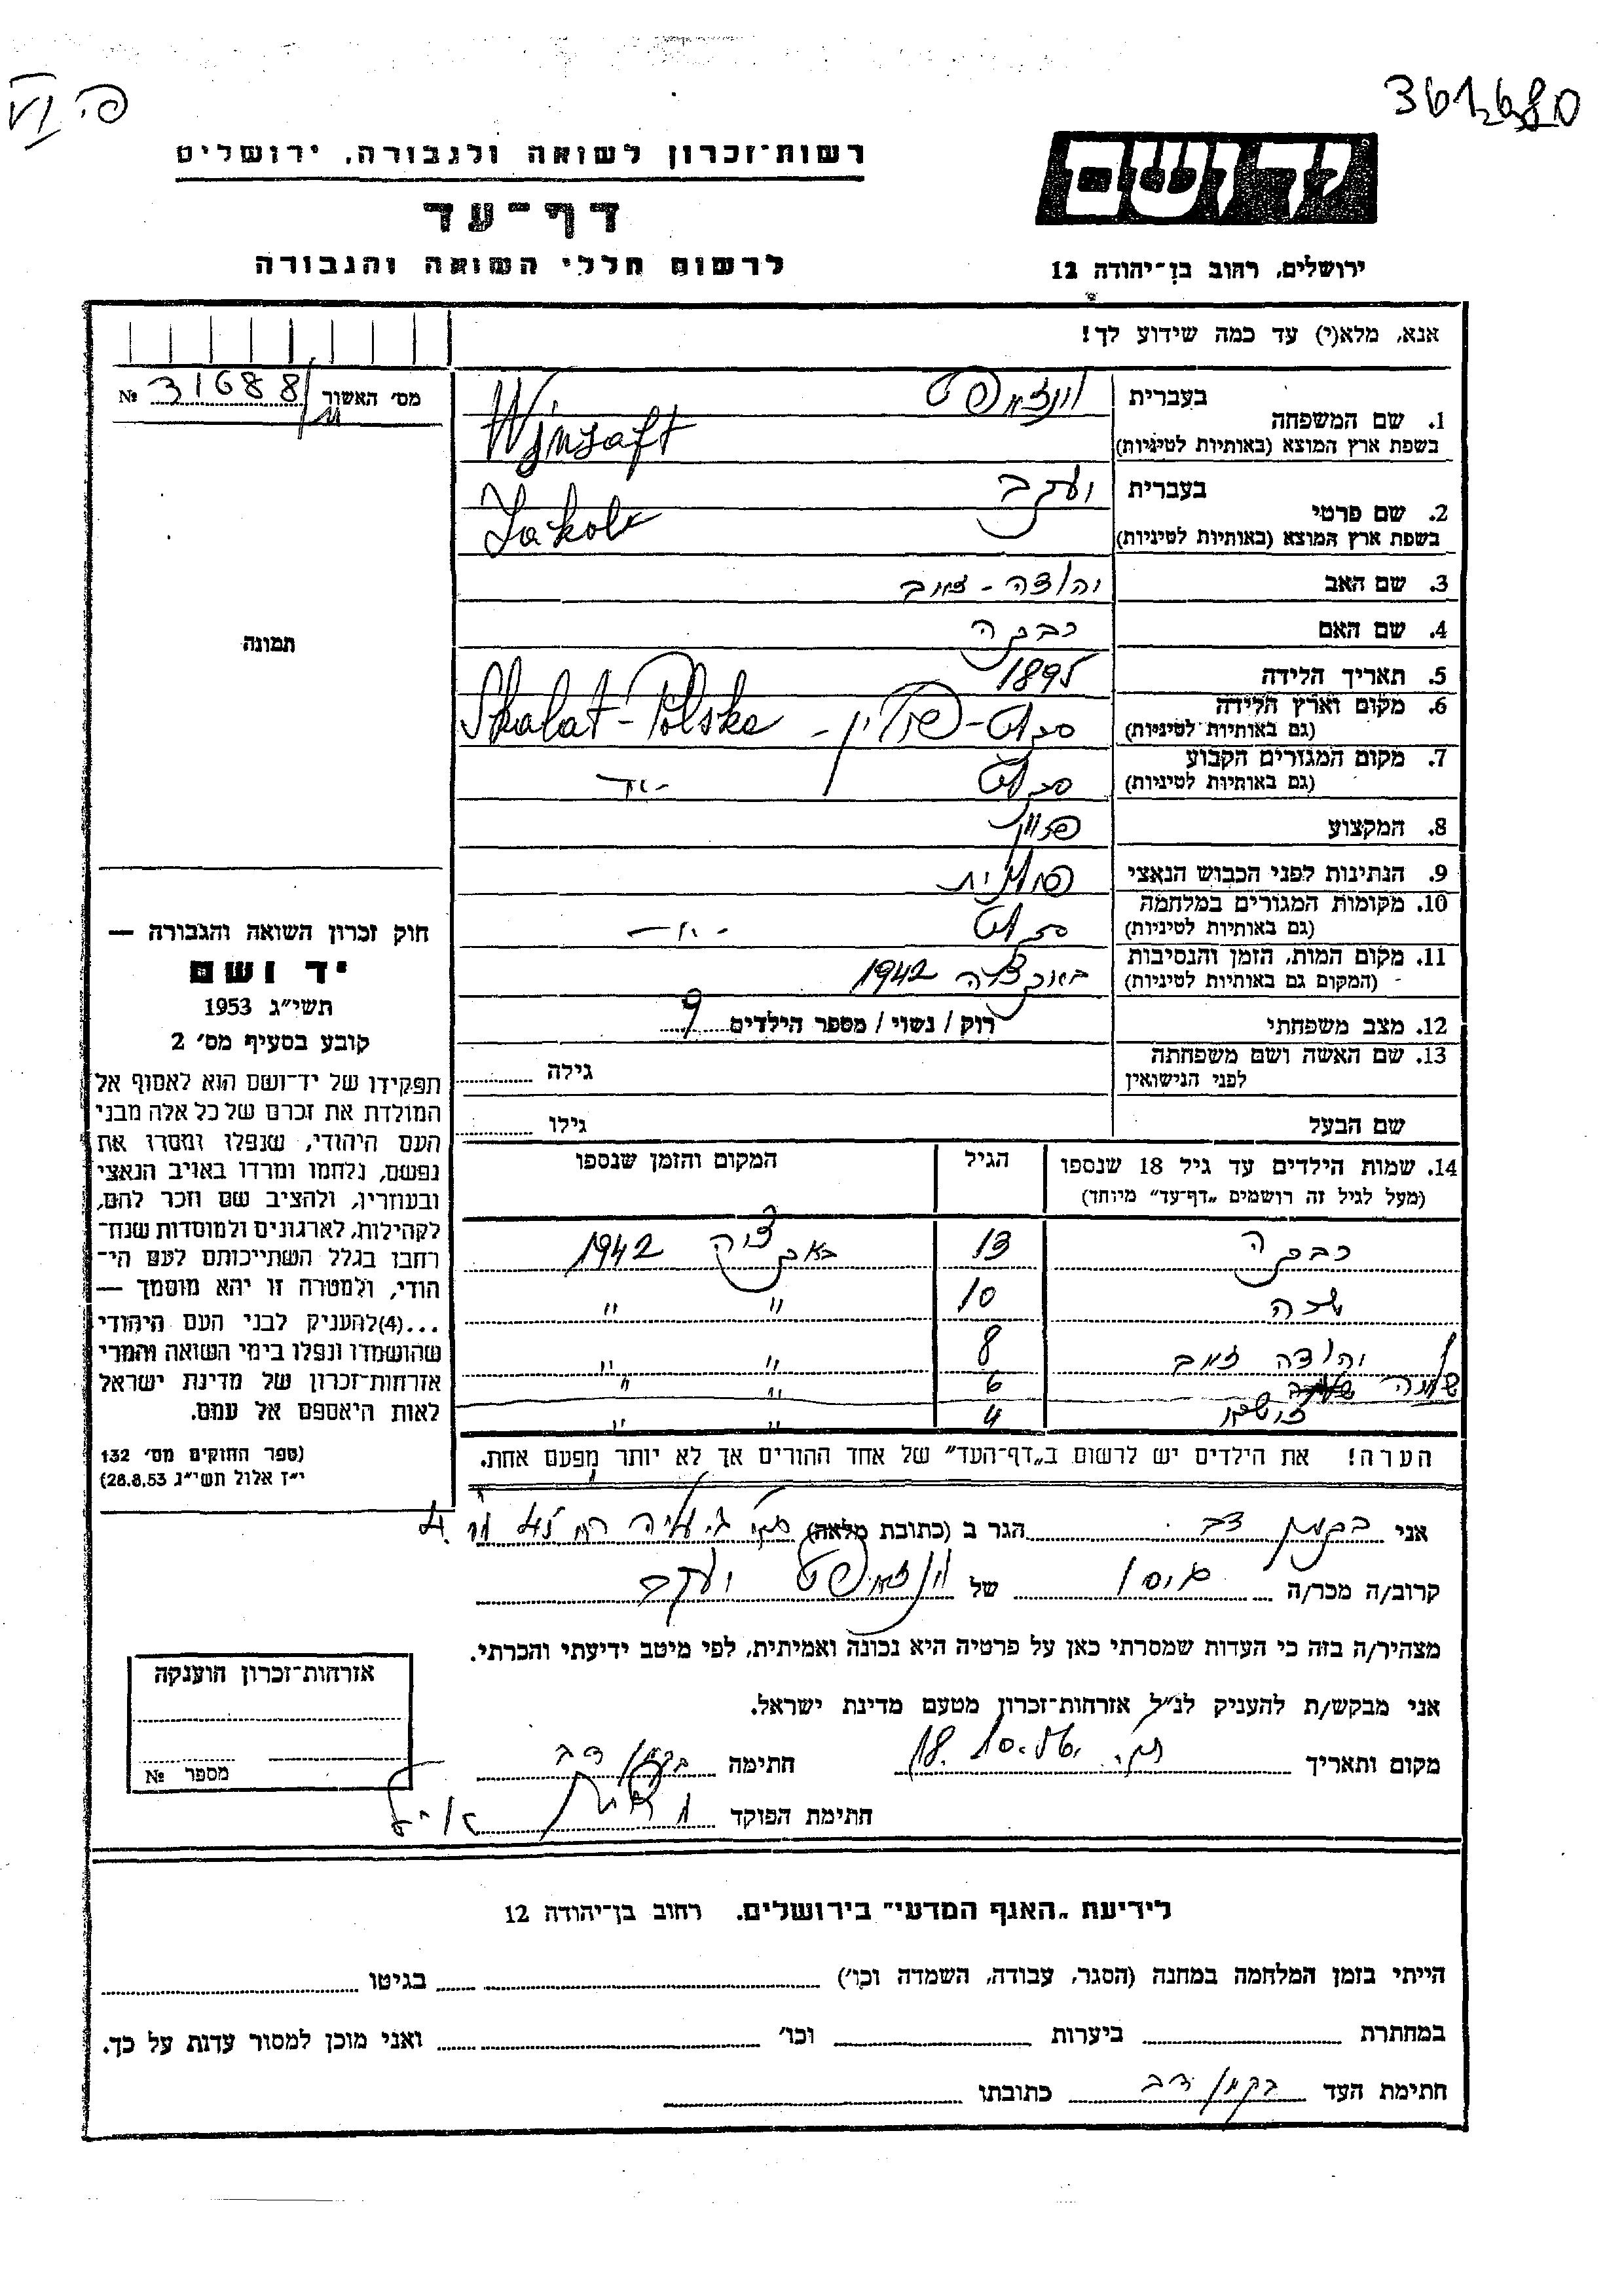 361680
פה. VI
יד ושם
רשות־זכרון לשואה ולגבורה, ירושלים
דף־עד
לרשום חללי השואה והגבורה
ירושלים, רחוב בן־יהודה 12
אנא, מלא(י) עד כמה שידוע לך!
מס׳ האשור № 31688
1. שם המשפחה
בעברית וינזאפט
בשפת ארץ המוצא (באותיות לטיניות) Winsaft
2. שם פרטי
בעברית יעקב
בשפת ארץ המוצא (באותיות לטיניות) Jakob
3. שם האב יהודה - זאב
4. שם האם רבקה
5. תאריך הלידה 1895
6. מקום וארץ הלידה (גם באותיות לטיניות) סקלט - פולין - Skalat - Polska
7. מקום המגורים הקבוע (גם באותיות לטיניות) סקלט -"-
8. המקצוע
9. הנתינות לפני הכבוש הנאצי פולנית
10. מקומות המגורים במלחמה (גם באותיות לטיניות) סקלט -"-
11. מקום המות, הזמן והנסיבות (המקום גם באותיות לטיניות) באקציה 1942
12. מצב משפחתי רוק / נשוי / מספר הילדים 9
13. שם האשה ושם משפחתה לפני הנישואין גילה
שם הבעל גילו
14. שמות הילדים עד גיל 18 שנספו
(מעל לגיל זה רושמים „דף־עד” מיוחד)
הגיל
המקום והזמן שנספו
רבקה 13 1942
שרה 10 " "
יהודה זאב 8 " "
שלמה 6 " "
4 " "
הערה! את הילדים יש לרשום ב„דף־העד” של אחד ההורים אך לא יותר מפעם אחת.
תמונה
חוק זכרון השואה והגבורה —
יד ושם
תשי״ג 1953
קובע בסעיף מס׳ 2
תפקידו של יד־ושם הוא לאסוף אל
המולדת את זכרם של כל אלה מבני
העם היהודי, שנפלו ומסרו את
נפשם, נלחמו ומרדו באויב הנאצי
ובעוזריו, ולהציב שם וזכר להם,
לקהילות, לארגונים ולמוסדות שנח־
רחבו בגלל השתייכותם לעם הי־
הודי, ולמטרה זו יהא מוסמך —
...(4)להעניק לבני העם היהודי
שהושמדו ונפלו בימי השואה והמרי
אזרחות־זכרון של מדינת ישראל
לאות היאספם אל עמם.
(ספר החוקים מס׳ 132
י״ז אלול תשי״ג 28.8.53)
אני בקמן דב הגר ב (כתובת מלאה)
קרוב/ה מכר/ה גיסו של וינזאפט יעקב
מצהיר/ה בזה כי העדות שמסרתי כאן על פרטיה היא נכונה ואמיתית, לפי מיטב ידיעתי והכרתי.
אני מבקש/ת להעניק לנ״ל אזרחות־זכרון מטעם מדינת ישראל.
מקום ותאריך 18.10.56 חתימה בקמן דב
חתימת הפוקד
אזרחות־זכרון הוענקה
מספר №
לידיעת „האגף המדעי” בירושלים. רחוב בן־יהודה 12
הייתי בזמן המלחמה במחנה (הסגר, עבודה, השמדה וכו׳) בגיטו
במחתרת ביערות וכו׳ ואני מוכן למסור עדות על כך.
חתימת העד בקמן דב כתובתו